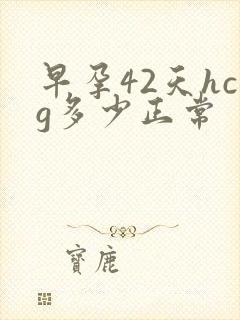 早孕42天hc
g多少正常
寶鹿